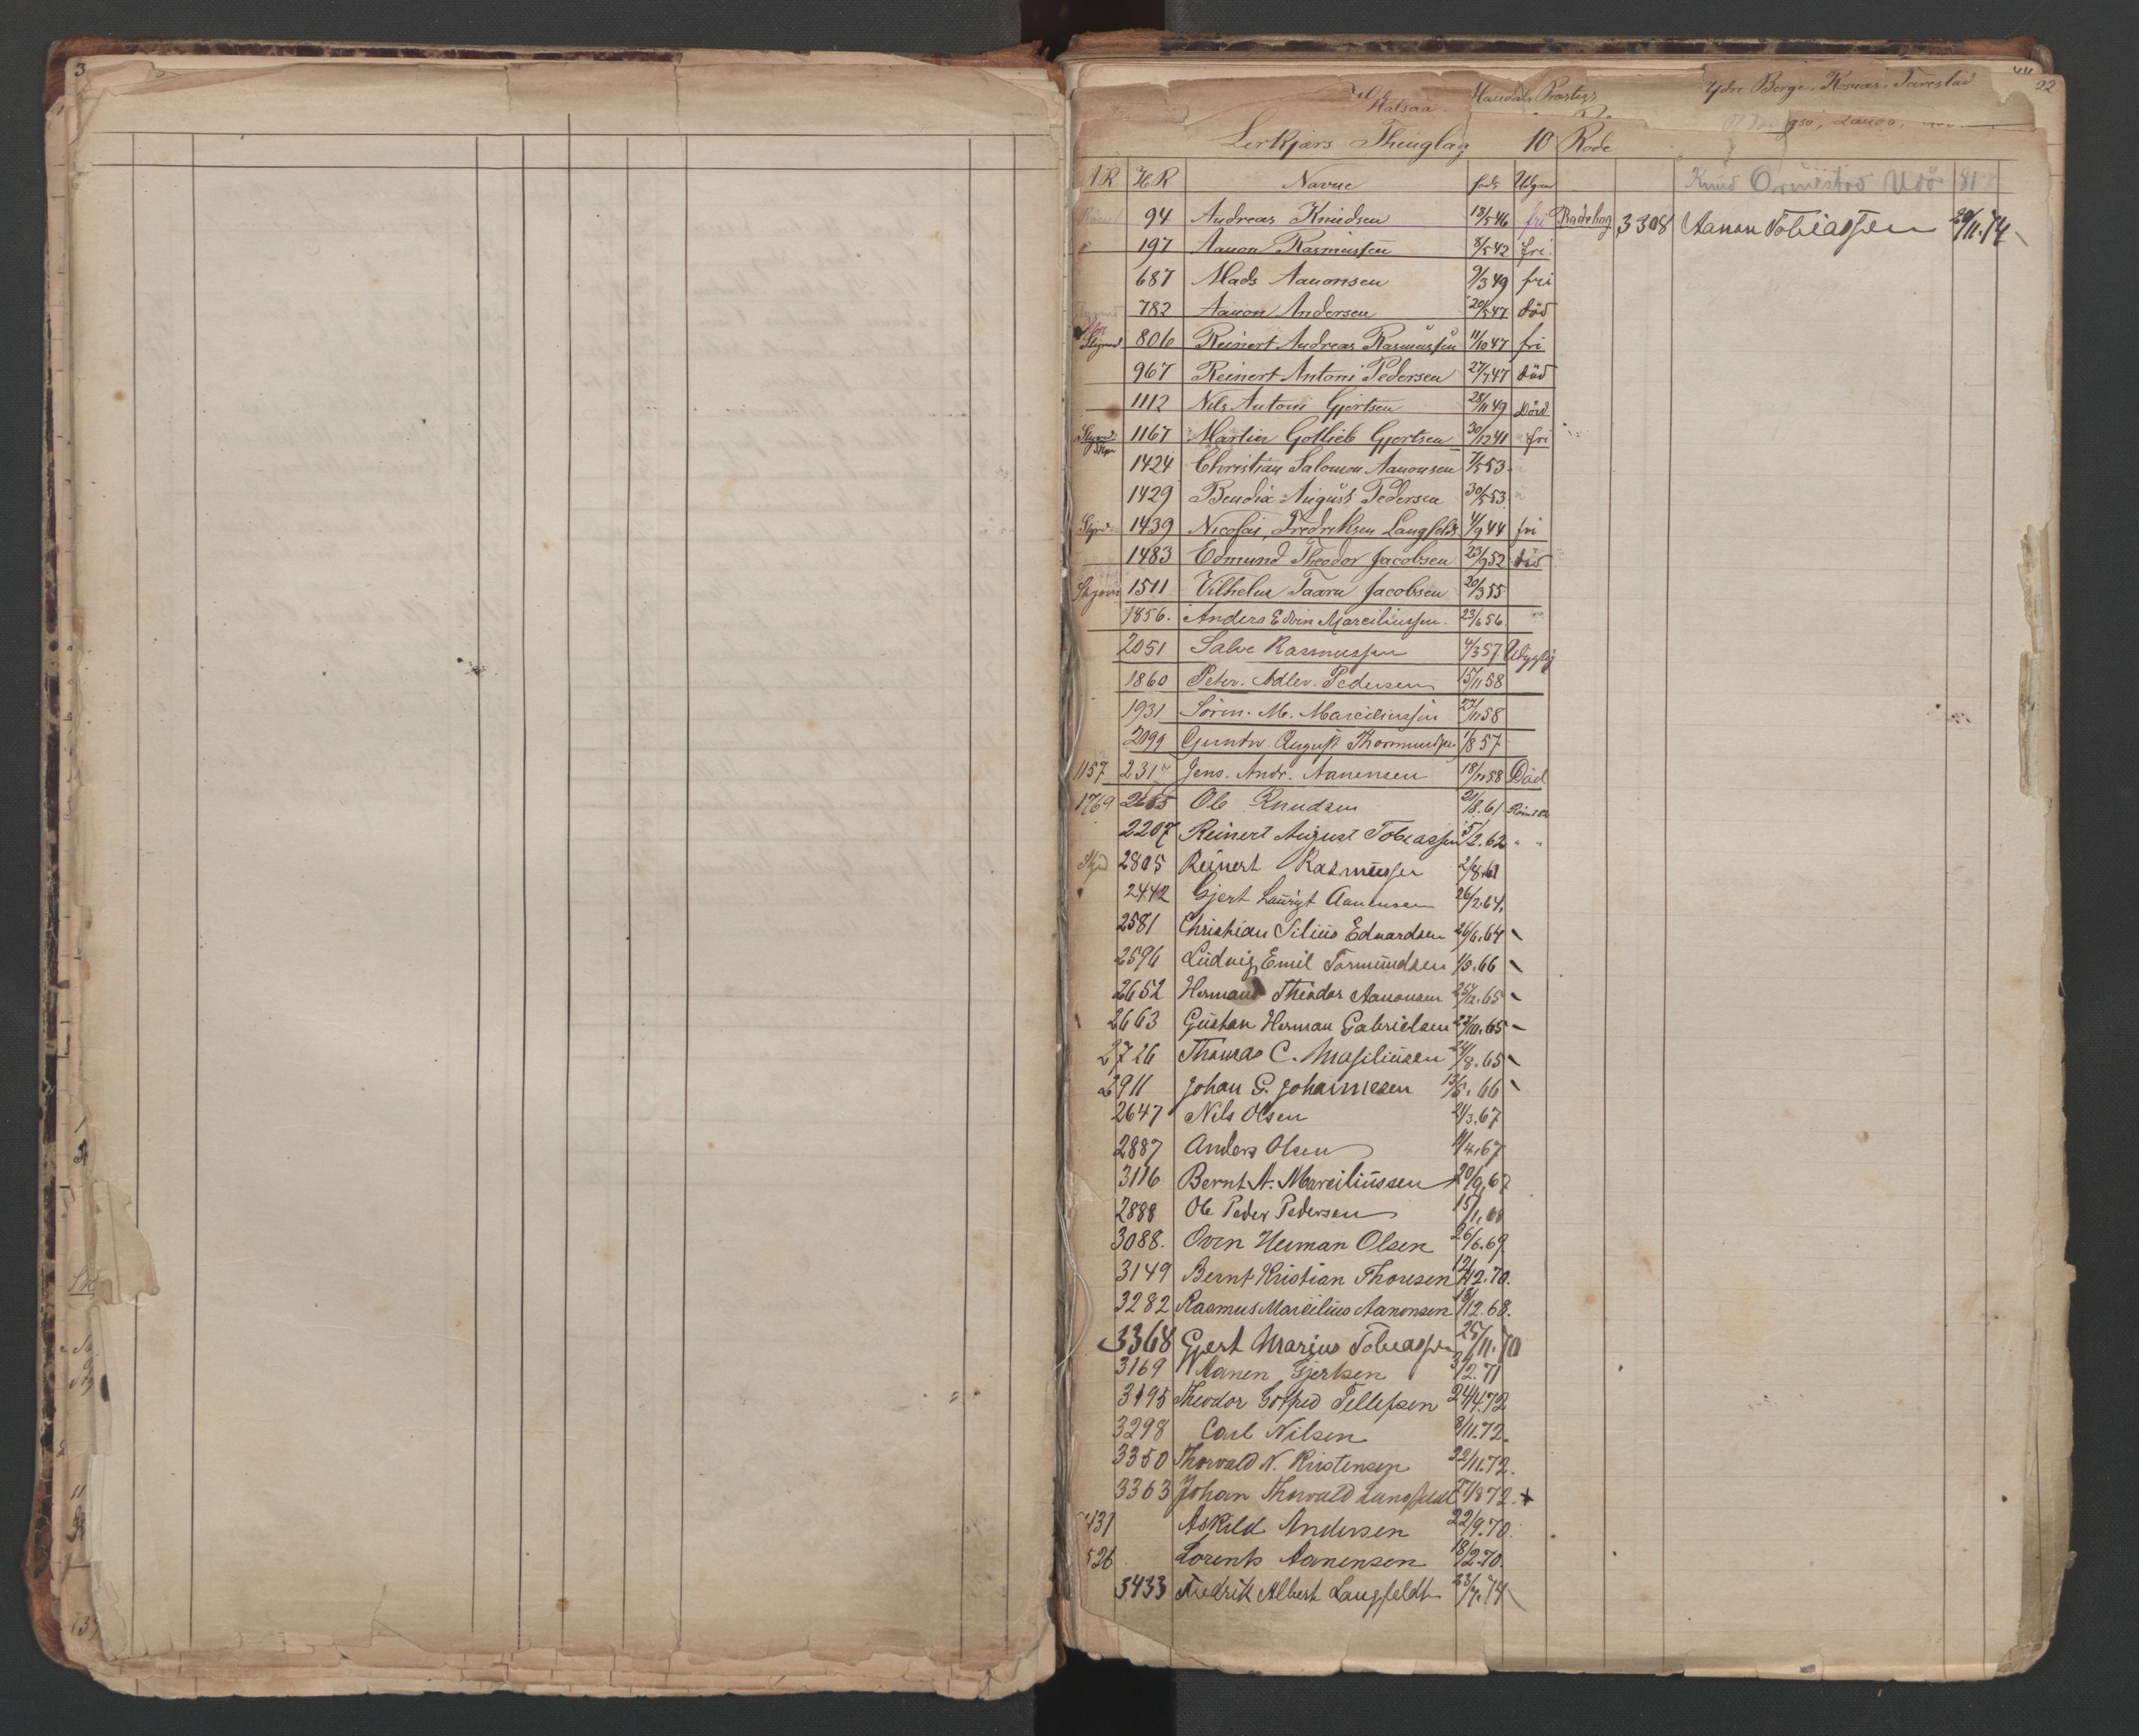 3
Halsaa Mandals Præstegs Ydre Berge. Rosnæs. Tarestad 22
Lerkjærs Thinglag 10 Rode
A R H R Navne føds Udgaar Knud Ormestad Udö 81
94 Andreas Knudsen 18/5 46 fri Rodebog 3308 Aanon Tobiassen 20/11.74
197 Aanon Rasmussen 8/5 42 fri.
687 Mads Aanonsen 9/3 49 fri
782 Aanon Andersen 20/5 47 död
806 Reinert Andreas Rasmussen 11/10 47 fri
967 Reinert Antoni Pedersen 27/7 47 död
1112 Nils Antoni Gjertsen 28/11 49 Död
1167 Martin Gotlieb Gjertsen 30/12 41 fri
1424 Christian Salomon Aanonsen 7/5 53
1429 Bendix August Pedersen 30/5 53
Styrd 1439 Nicolai Fredriksen Langfeldt 4/9 44 fri
1483 Edmund Theodor Jacobsen 23/9 52 död
1511 Vilhelm Taaru Jacobsen 20/3 55
1856. Anders Edvin Marciliussen. 23/6 56
2051 Salve Rasmussen 4/3 57 Udygtig
1860 Peter. Adler. Pedersen 15/11 58
1931 Sörin. M. Marciliussen 27/11 58
2099 Gunder August Thormundsen 1/8 57
1157 231 Jens. Andr. Aanensen 18/11 58 Död
1769 2655 Ole Knudsen 21/8.61
2207 Reinert August Tobiassen 5/2.62 " "
2805 Reinert Rasmussen 2/8.61
2442 Gjert Lauritz Aanensen 26/2.64.
2581 Christian Silius Edvardsen 26/6.64
2596 Ludvig Emil Tormundsen 1/5.66
2652 Herman Theodor Aanonsen 25/12.65
2663 Gustav Herman Gabrielsen 23/10.65
2726 Thomas C. Masiliussen 24/8.65
2911 Johan G. Johannesen 13/5.66
2647 Nils Olsen 21/3.67
2887 Anders Olsen 11/4.67
3116 Bernt A. Marciliussen 20/9.67
2888 Ole Peder Pedersen 15/1.68
3088. Oven Herman Olsen 26/6.69
3149 Bernt Kristian Thorsen 12/12.70.
3282 Rasmus Marcilius Aanonsen 18/12.68.
3368 Gjert Marius Tobiassen 25/11.70
3169 Manen Gjertsen 3/2.71
3195 Theodor Gotfred Tellefsen 24/4.72
3298 Carl Nilsen 8/11.72.
3350 Thorvald N. Kristensen 22/11.72.
3363 Johan Thorvald Langfeldt 27/8 72.
431 Askild Andersen 22/9.70.
526 Lorents Aanensen 18/2.70.
3433 Fredrik Albert Langfeldt 23/7.74